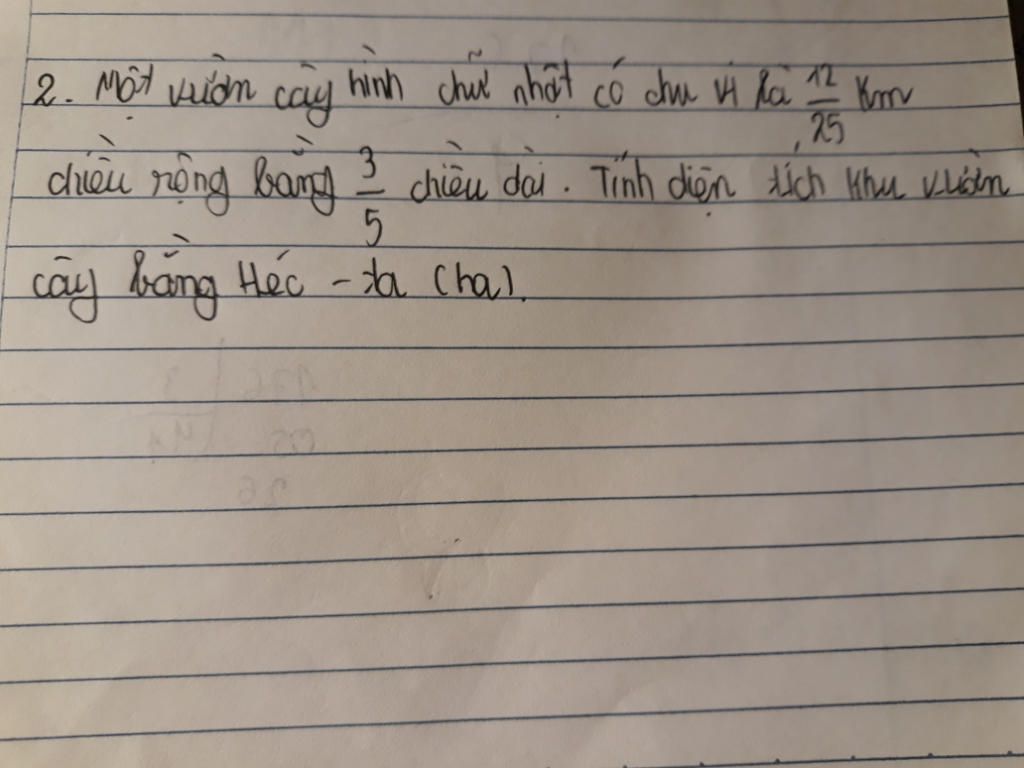 2. Một vườn cây hình chữ nhật có chu vi là 12/25 Km
chiều rộng bằng 3/5 chiều dài. Tính diện tích khu vườn
cây bằng Héc - ta (ha).